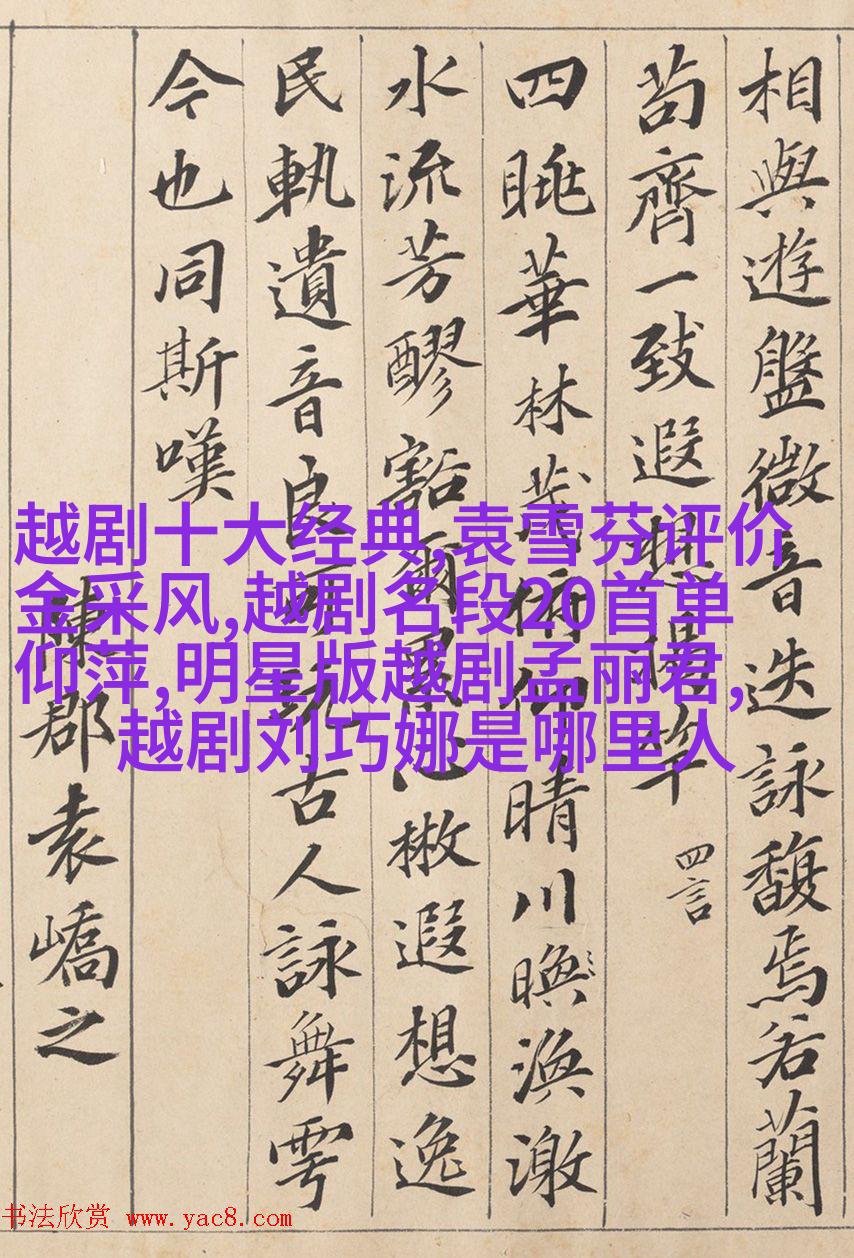 相與遊盤微音迭詠馥焉若蘭
苟齊一致遐想揭竿
四言
四眺華林茂俯仰晴川㬇渙激
水流芳醪豁爾累心楸遐想逸
民軌遺音良可翫古人詠舞雩
今也同斯嘆
陳郡袁嶠之
越剧十大经典,袁雪芬评价
金采风,越剧名段20首单
仰萍,明星版越剧孟丽君,
越剧刘巧娜是哪里人
书法欣赏 www.yac8.com